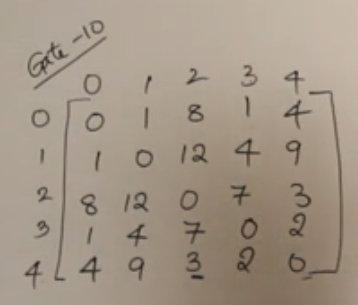 Gate-10
0 1 2 3 4
0 0 1 8 1 4
1 1 0 12 4 9
2 8 12 0 7 3
3 1 4 7 0 2
4 4 9 3 2 0